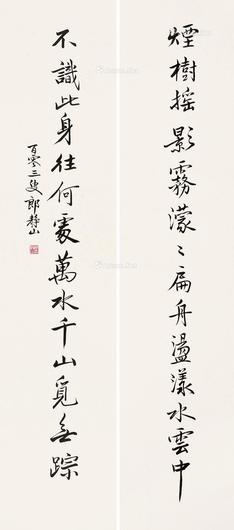 煙樹搖影霧濛〻扁舟盪漾水雲中
不識此身往何處萬水千山覓無踪
百零三叟郎靜山